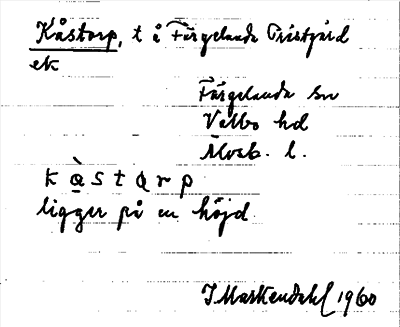 Kåstorp, t å Färgelanda Prästgård
ek
Färgelanda sn
Valbo hd
Älvsb. l.
k à s t ɑ r p
ligger på en höjd.
I Markendahl 1960